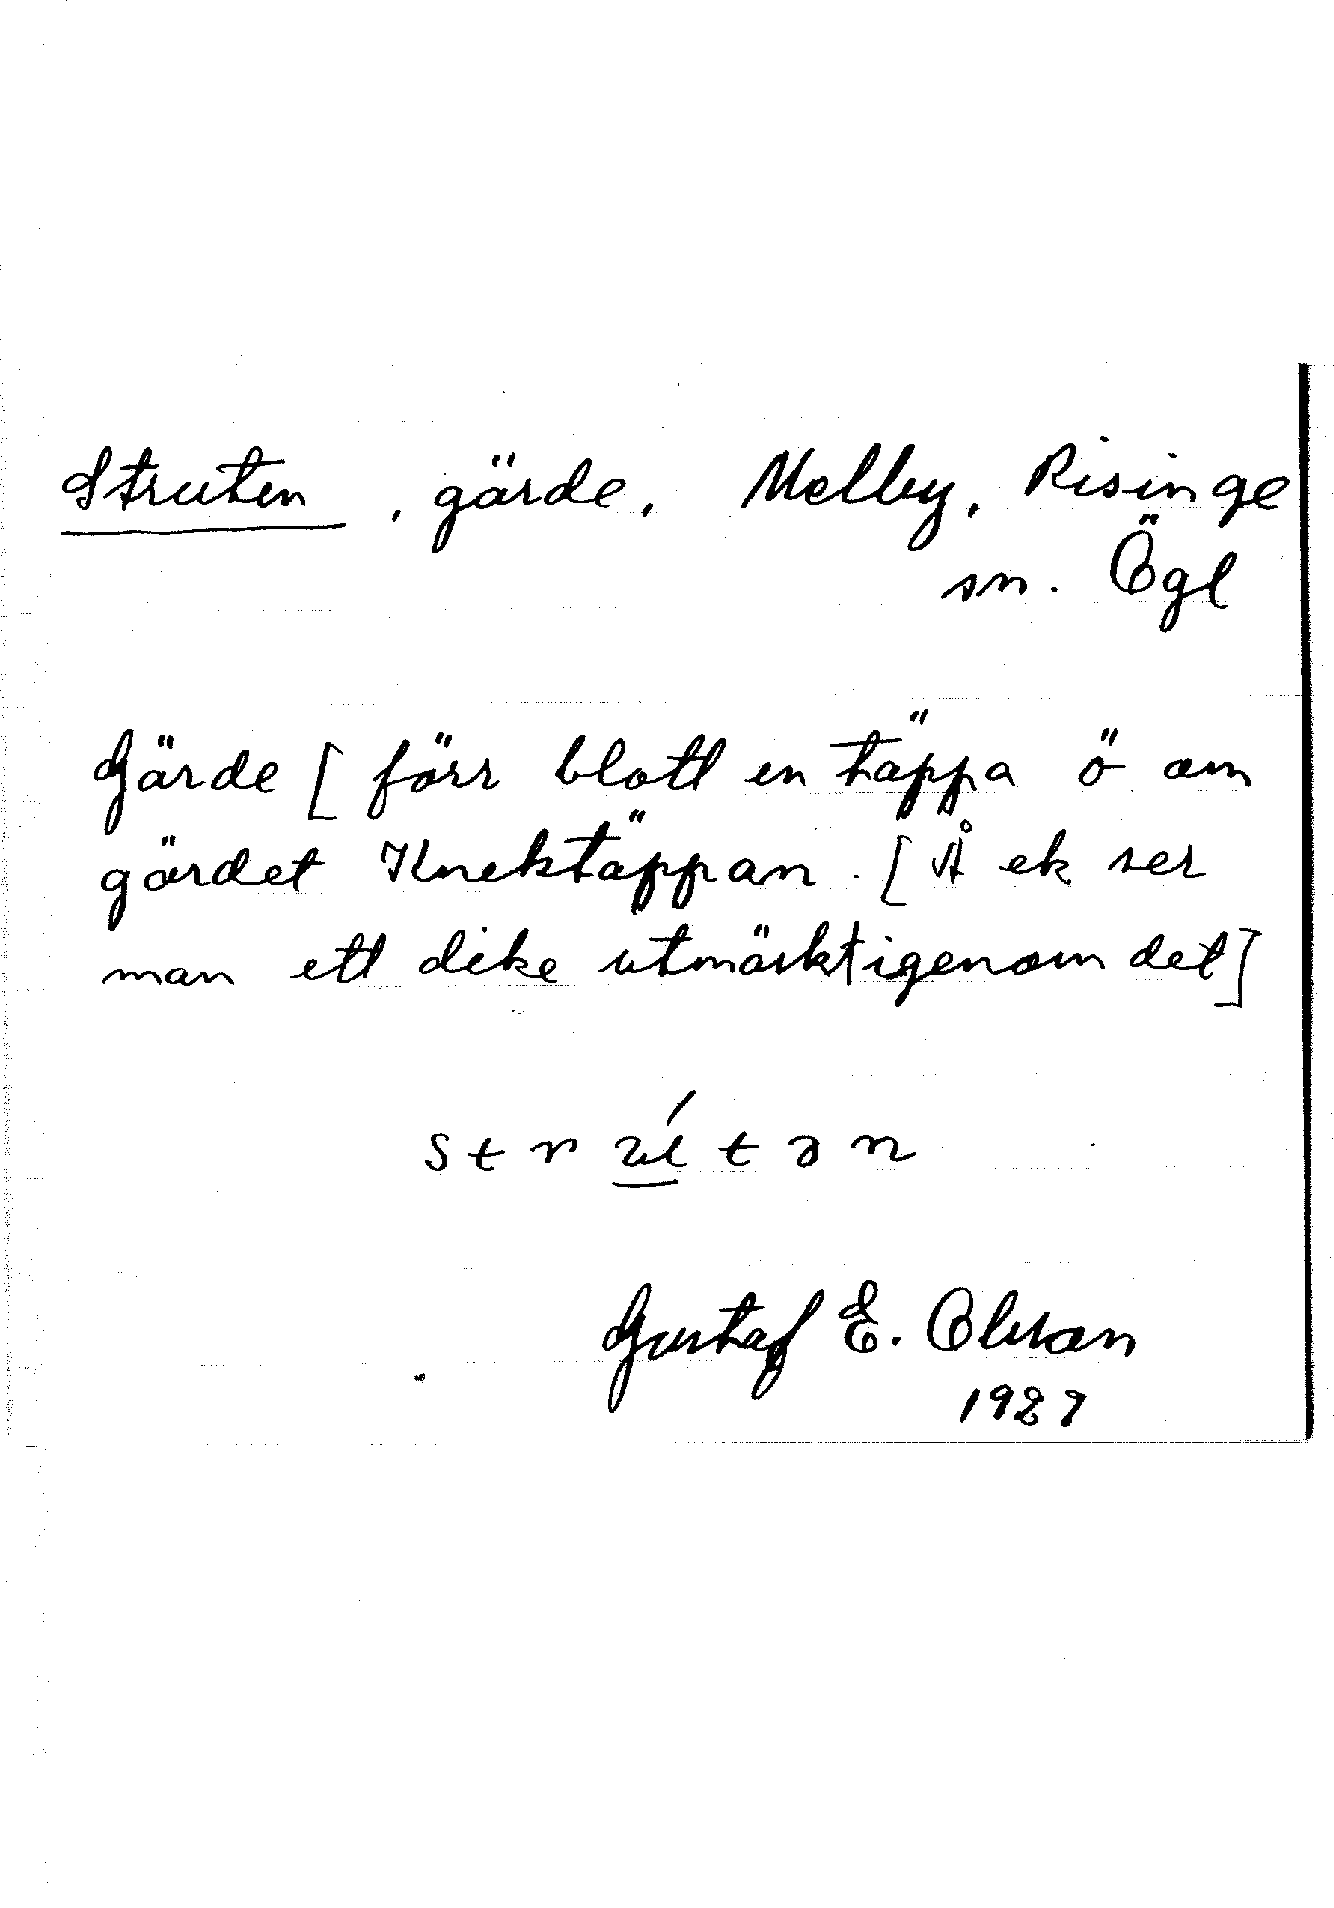 Struten, gärde, Melby, Risinge
sn. Ögl
Gärde [ förr blott en täppa ö om
gärdet Knektäppan. [ Å ek ser
man ett dike utmärkt igenom det]
strútən
Gustaf E. Olsson
1927